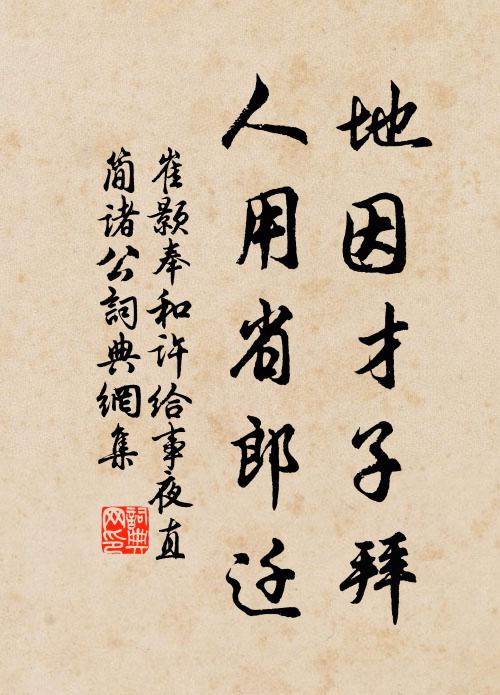 地因才子拜
人用省郎迁
崔颢奉和许给事夜直
简诸公词典網集
詞典网印